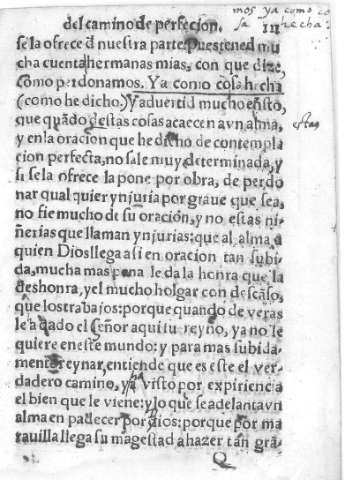 mos ya como co
sa hecha:
del camino de perfecion. III
se la ofrece d nuestra parte. Pues tened mu
cha cuenta hermanas mias, con que dize,
Como perdonamos. Ya como cosa hecha
(como he dicho.) Y aduertid mucho ensto,
que quãdo destas cosas acaecen avn alma,
estas
y en la oracion que he dicho de contempla
cion perfecta, no sale muy determinada, y
si se la ofrece la pone por obra, de perdo
nar qual quier ynjuria por graue que sea,
no fie mucho de su oración, y no estas ni-
ñerias que llaman ynjurias: que al alma a
quien Dios llega a si en oracion tan subi-
da, mucha mas pena le da la honra que la
deshonra, y el mucho holgar con descãso,
que los trabajos: porque quando de veras
le a dado el Señor aqui su reyno, ya no le
quiere en este mundo: y para mas subida-
mente reynar, entiende que es este el ver-
dadero camino, y ha visto por expiriencia
el bien que le viene: y lo que se adelanta vn
alma en padecer por dios: porque por ma
rauilla llega su magestad a hazer tan grã-
Q